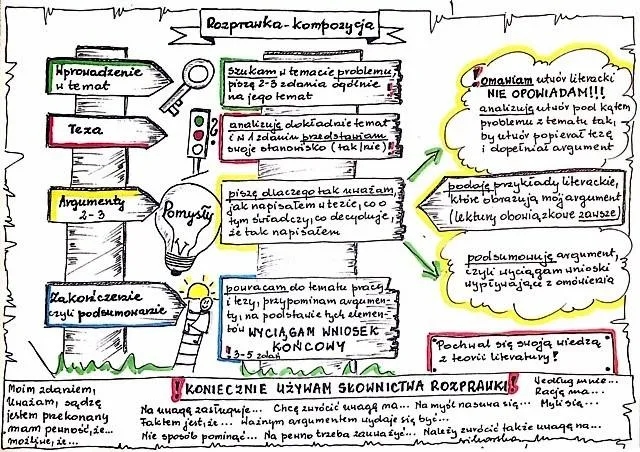 Rozprawka - kompozycja
Wprowadzenie
w temat
szukam w temacie problemu,
piszę 2-3 zdania ogólnie
na jego temat
Teza
?
analizuję dokładnie temat
i w 1 zdaniu przedstawiam
swoje stanowisko (tak/nie)!
Argumenty
2-3
Pomysły
piszę dlaczego tak uważam,
jak napisałem w tezie, co o
tym świadczy, co decyduje,
że tak napisałem
Zakończenie
czyli podsumowanie
powracam do tematu pracy
i tezy, przypominam argumen-
ty, na podstawie tych elemen-
tów WYCIĄGAM WNIOSEK
KOŃCOWY
! 3-5 zdań
! omawiam utwór literacki
NIE OPOWIADAM!!!
analizuję utwór pod kątem
problemu z tematu tak,
by utwór popierał tezę
i dopełniał argument
podaję przykłady literackie,
które obrazują mój argument
(lektury obowiązkowe zawsze)
podsumowuję argument,
czyli wyciągam wnioski
wypływające z omówienia
Pochwal się swoją wiedzą
z teorii literatury!
! KONIECZNIE UŻYWAM SŁOWNICTWA ROZPRAWKI !
Moim zdaniem,
Uważam, sądzę
jestem przekonany
mam pewność, że...
możliwe, że...
Na uwagę zasługuje... Chcę zwrócić uwagę na... Na myśl nasuwa się...
Faktem jest, że... Ważnym argumentem wydaje się być...
Nie sposób pominąć... Na pewno trzeba zauważyć... Należy zwrócić także uwagę na...
Według mnie...
Rację ma...
Myli się...